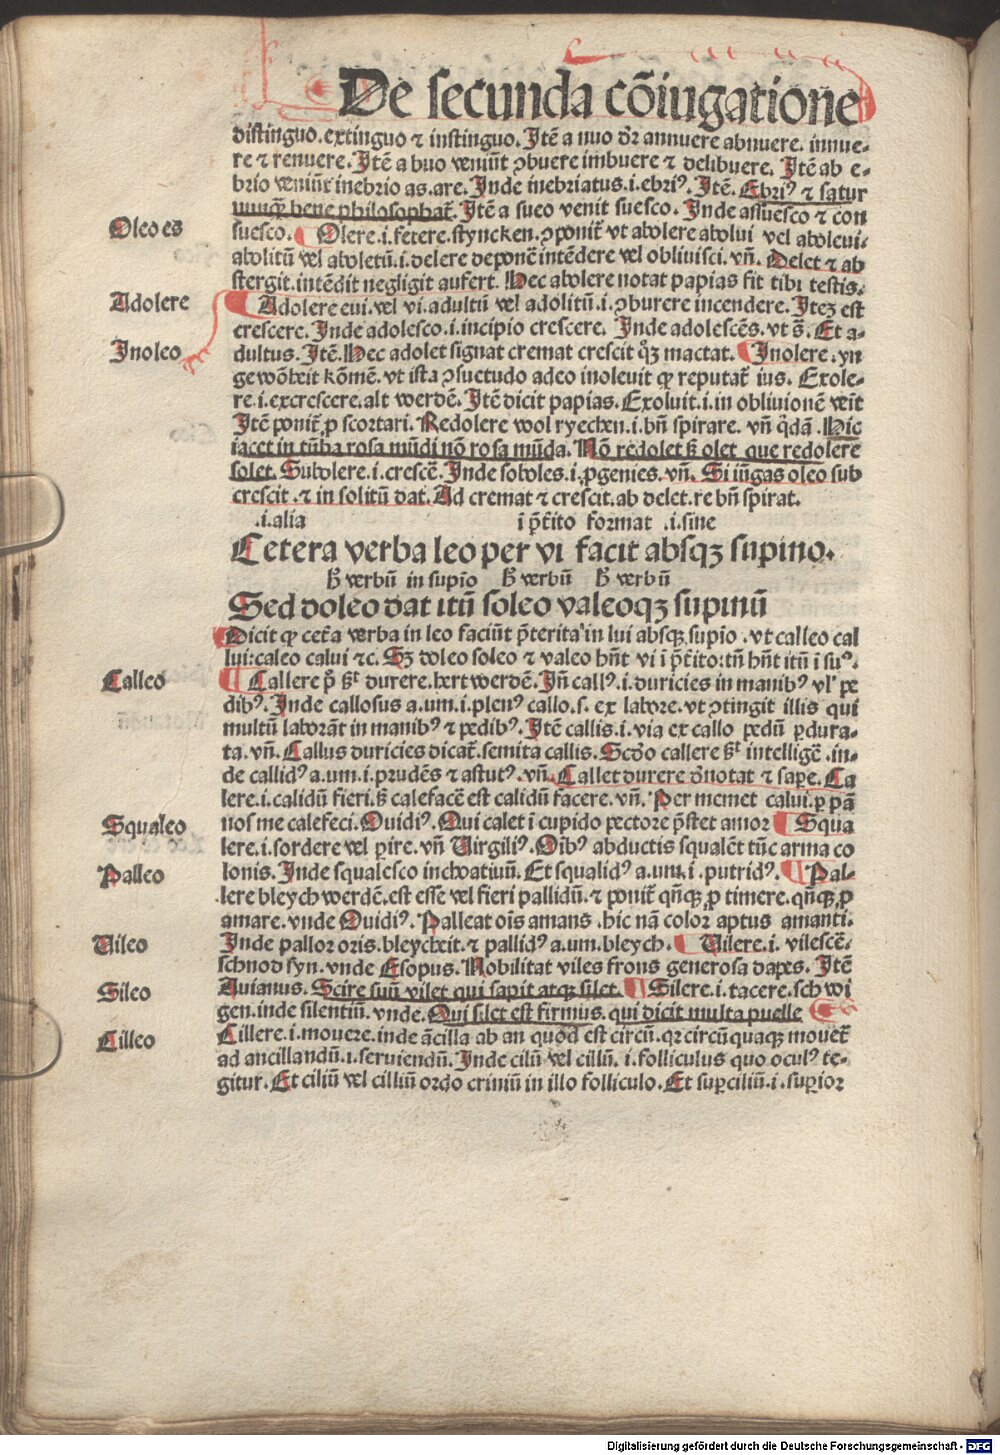 De secunda cōiugatione
distinguo.extinguo ⁊ instinguo. Itē a nuo dr̄ annuere abnuere. innue-
re ⁊ renuere. Itē a buo veniūt ꝯbuere imbuere ⁊ delibuere. Itē ab e-
brio veniūt inebrio as.are. Inde inebriatus.i.ebriꝰ. Itē. Ebriꝰ ⁊ satur
nunqꝫ bene philosophat̄. Itē a sueo venit suesco. Inde assuesco ⁊ con
Oleo es
suesco. Olere.i.fetere.styncken.ꝯponit̄ vt abolere abolui vel aboleui.
abolitū vel aboletū.i.delere deponē intēdere vel obliuisci. vn̄. Delet ⁊ ab
stergit.intēdit negligit aufert. Hec abolere notat papias fit tibi testis.
Adolere
Adolere eui.vel vi.adultū vel adolitū.i.ꝯburere incendere. Iteꝫ est
crescere. Inde adolesco.i.incipio crescere. Inde adolescēs.vt s̄. Et a-
Inoleo
dultus. Itē. Hec adolet signat cremat crescit qꝫ mactat. Inolere.yn
gewōheit kōmē.vt ista ꝯsuetudo adeo inoleuit ꝙ reputat̄ ius. Exole-
re.i.excrescere.alt werdē. Itē dicit papias. Exoluit.i.in obliuionē venit
Itē ponit̄ ꝓ scortari. Redolere wol ryechen.i.bn̄ spirare. vn̄ qdā. Hic
iacet in tūba rosa mūdi nō rosa mūda. Nō redolet sꝫ olet que redolere
solet. Subolere.i.crescē. Inde soboles.i.ꝓgenies.vn̄. Si iūgas oleo sub
crescit.⁊ in solitū dat. Ad cremat ⁊ crescit.ab delet.re bn̄ spirat.
.i.alia i p̄t̄ito format .i.sine
Cetera verba leo per vi facit absqꝫ supino.
hꝫ verbū in supīo hꝫ verbū hꝫ verbū
Sed doleo dat itū soleo valeoqꝫ supinū
Dicit ꝙ cet̄a verba in leo faciūt p̄terita in lui absqꝫ supīo.vt calleo cal
lui:caleo calui ⁊c. Sꝫ doleo soleo ⁊ valeo hn̄t vi i p̄t̄ito:tn̄ hn̄t itū i suᵒ.
Calleo
Callere p̄ sꝫᵗ durere.hert werdē. In̄ callꝰ.i.duricies in manibꝰ vl' pe
dibꝰ. Inde callosus a.um.i.plenꝰ callo.s.ex labore.vt ꝯtingit illis qui
multū laborāt in manibꝰ ⁊ pedibꝰ. Itē callis.i.via ex callo pedū ꝑdura-
ta.vn̄. Callus duricies dicat̄.semita callis. Scd̄o callere sꝫᵗ intelligē.in-
de callidꝰ a.um.i.prudēs ⁊ astutꝰ.vn̄. Callet durere d̄notat ⁊ saꝑe. Ca
lere.i.calidū fieri.sꝫ calefacē est calidū facere.vn̄. Per memet calui.ꝑ pā
Squaleo
nos me calefeci. Ouidiꝰ. Qui calet i cupido pectore p̄stet amor Squa
lere.i.sordere vel ꝑire.vn̄ Virgiliꝰ. Oībꝰ abductis squalēt tūc arma co
Palleo
lonis. Inde squalesco inchoatiuū. Et squalidꝰ a.um.i.putridꝰ. Pal-
lere bleych werdē.est esse vel fieri pallidū.⁊ ponit̄ qn̄qꝫ ꝓ timere.qn̄qꝫ ꝓ
amare.vnde Ouidiꝰ. Palleat ois amans.hic nā color aptus amanti.
Uileo
Inde pallor oris.bleycheit.⁊ pallidꝰ a.um.bleych. Uilere.i.vilescē.
schnod syn.vnde Esopus. Nobilitat viles frons generosa dapes. Itē
Sileo
Auianus. Scire suū vilet qui sapit atqꝫ silet. Silere.i.tacere.schwi
gen.inde silentiū.vnde. Qui silet est firmus.qui dicit multa puelle
Cilleo
Cillere.i.mouere.inde ācilla ab an quod est circū.qr circūquaqꝫ mouet̄
ad ancillandū.i.seruiendū. Inde cilū vel cillū.i.folliculus quo oculꝰ te-
gitur. Et ciliū vel cilliū ordo criniū in illo folliculo. Et suꝑciliū.i.suꝑior
Digitalisierung gefördert durch die Deutsche Forschungsgemeinschaft - DFG